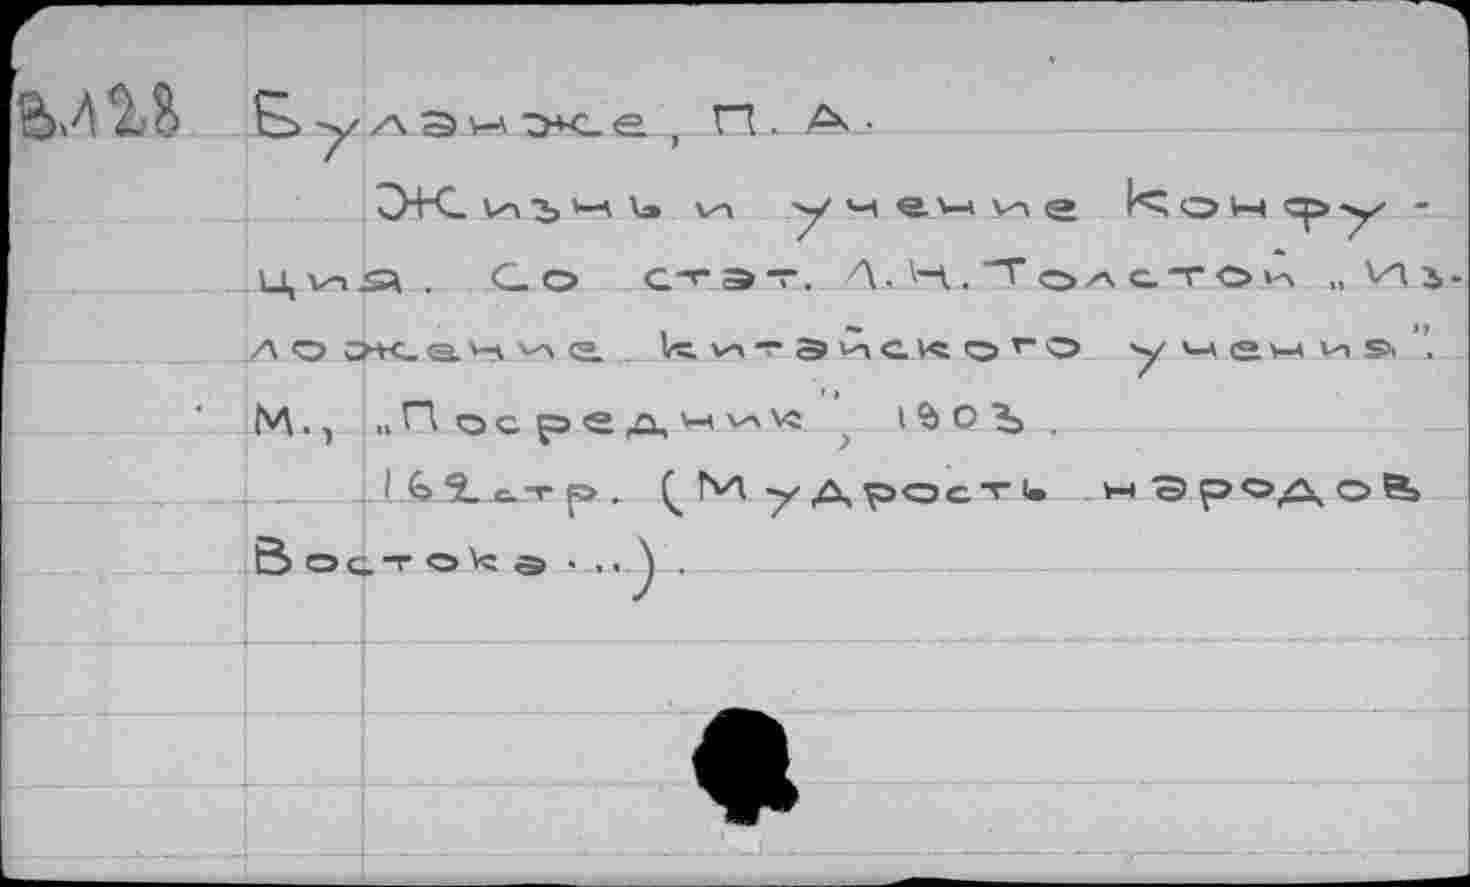 Буланже, П. А.
Жизнь и учение Конфу-
ция. Со стат. Л.Н.Толстой „Из-
ложение китайского учения".
М., „Посредник", 1903.
162 стр. (Мудрость народов
Востока...).